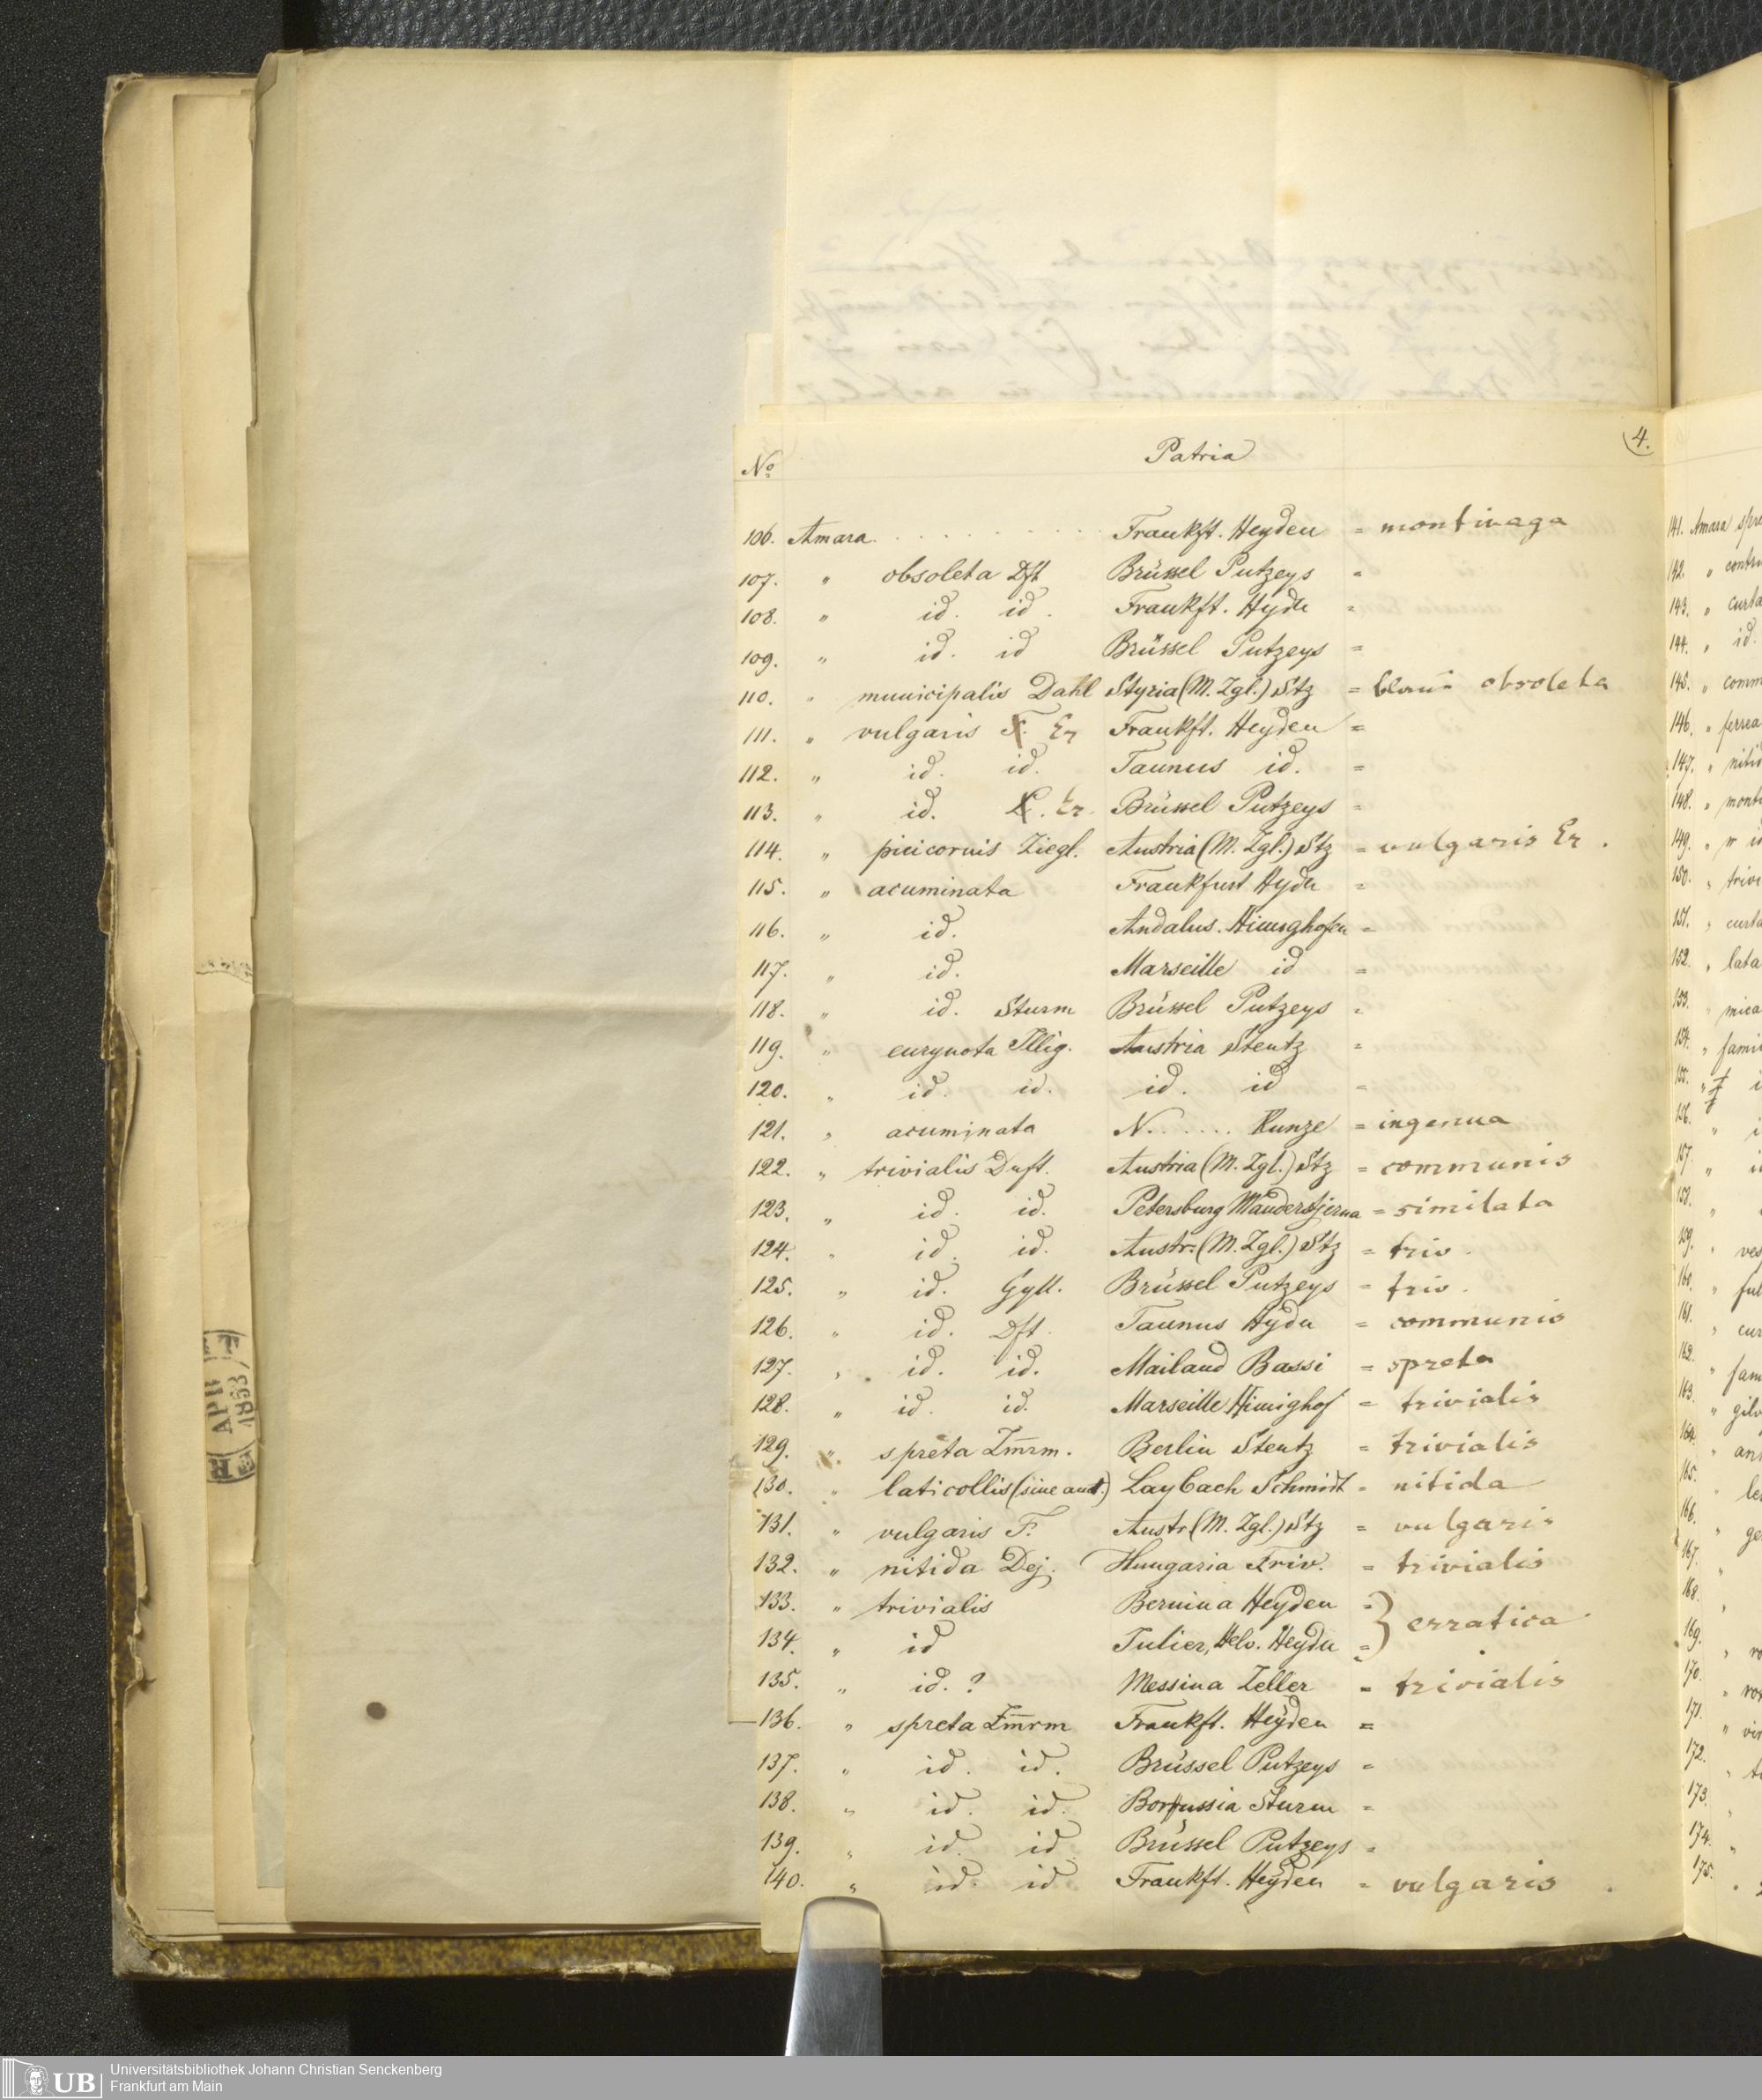 4.
No Patria
106. Amara . . . . . . . . Frankft. Heyden = montivaga
107. " obsoleta Dft Brüssel Putzeys =
108. " id. id. Frankft. Hydn =
109. " id. id Brüssel Putzeys =
110. " municipalis Dahl Styria (M. Zgl.) Stz = obsoleta
111. " vulgaris F. Er Frankft. Heyden =
112. " id. id. Taunus id. =
113. " id. L. Er. Brüssel Putzeys =
114. " picicornis Ziegl. Austria (M. Zgl.) Stz = vulgaris Er.
115. " acuminata Frankfurt Hydn =
116. " id. Andalus. =
117. " id. Marseille id =
118. " id. Sturm Brüssel Putzeys =
119. " eurynota Illig. Austria Stentz =
120. " id. id. id. id =
121. " acuminata N. . . . . . Kunze = ingenua
122. " trivialis Duft. Austria (M. Zgl.) Stz = communis
123. " id. id. Petersburg Manderstjerna = similata
124. " id. id. Austr. (M. Zgl.) Stz = triv.
125. " id. Gyll. Brüssel Putzeys = triv.
126. " id. Dft. Taunus Hydn = communis
127. " id. id. Mailand Bassi = spreta
128. " id. id. Marseille = trivialis
129. " spreta Zmrm. Berlin Stentz = trivialis
130. " laticollis (sine auct.) Laybach Schmidt = nitida
131. " vulgaris F. Austr (M. Zgl.) Stz = vulgaris
132. " nitida Dej. Hungaria Friv. = trivialis
133. " trivialis Bernina Heyden =
134. " id Julier, Helv. Heydn = } erratica
135. " id. ? Messina Zeller = trivialis
136. " spreta Zmrm Frankft. Heyden =
137. " id. id. Brüssel Putzeys =
138. " id. id. Borussia Sturm =
139. " id. id Brüssel Putzeys =
140. " id. id Frankft. Heyden = vulgaris.
141. Amara spre
142. " contr
143. " curta
144. " id.
145. " comm
146. " ferrea
147. " nitid
148. " monti
149. "
150. " trivi
151. " curta
152. " lata
153. " mica
154. " fami
APR
1853
UB Universitätsbibliothek Johann Christian Senckenberg
Frankfurt am Main